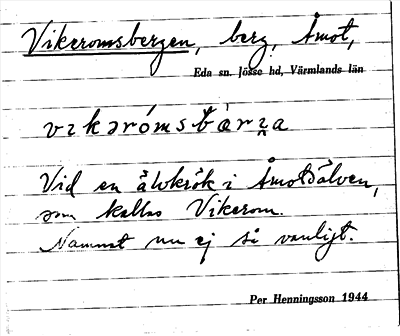 Vikeromsbergen, berg, Åmot,
Eda sn. Jösse hd, Värmlands län
vɪkərómsbær̀n̥a
Vid en älvkrök i Åmotsälven,
som kallas Vikerom.
Namnet nu ej så vanligt.
Per Henningsson 1944